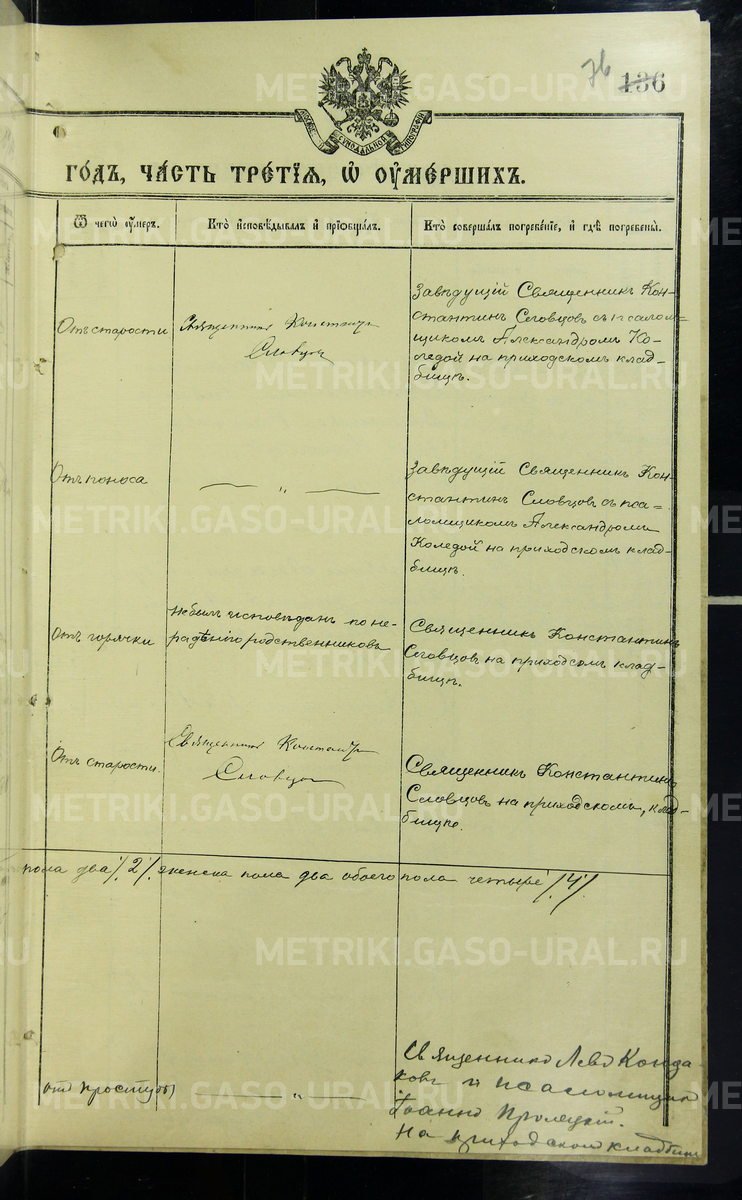 76
136
ГОДЪ, ЧАСТЬ ТРЕТІЯ, Ѡ ОУМЕРШИХЪ.
Ѿ чегѡ оумеръ.
Кто исповѣдывалъ и пріобщалъ.
Кто совершалъ погребеніе, и гдѣ погребены.
Отъ старости
Священникъ Констант
Словцов
Завѣдущій Священникъ Кон-
стантинъ Словцовъ съ псалом-
щикомъ Александромъ Ко-
ледой на приходскомъ клад-
бищѣ.
Отъ поноса
— „ —
Завѣдущій Священникъ Кон-
стантинъ Словцовъ съ пса=
ломщикомъ Александромъ
Коледой на приходскомъ клад-
бищѣ.
Отъ горячки
не былъ исповѣданъ по не-
радѣнію родственниковъ
Священникъ Константинъ
Словцовъ на приходском клад-
бищѣ.
Отъ старости.
Священникъ Констант
Словцов
Священникъ Константинъ
Словцовъ на приходскомъ, клад-
бищѣ.
пола два /2/ женска пола два обоего пола четыре /4/
отъ простуды
— „ —
Священникъ Левъ Конда-
ковъ и псаломщикъ
Іоаннъ Пролецкій.
На приходском кладбищѣ
METRIKI.GASO-URAL.RU